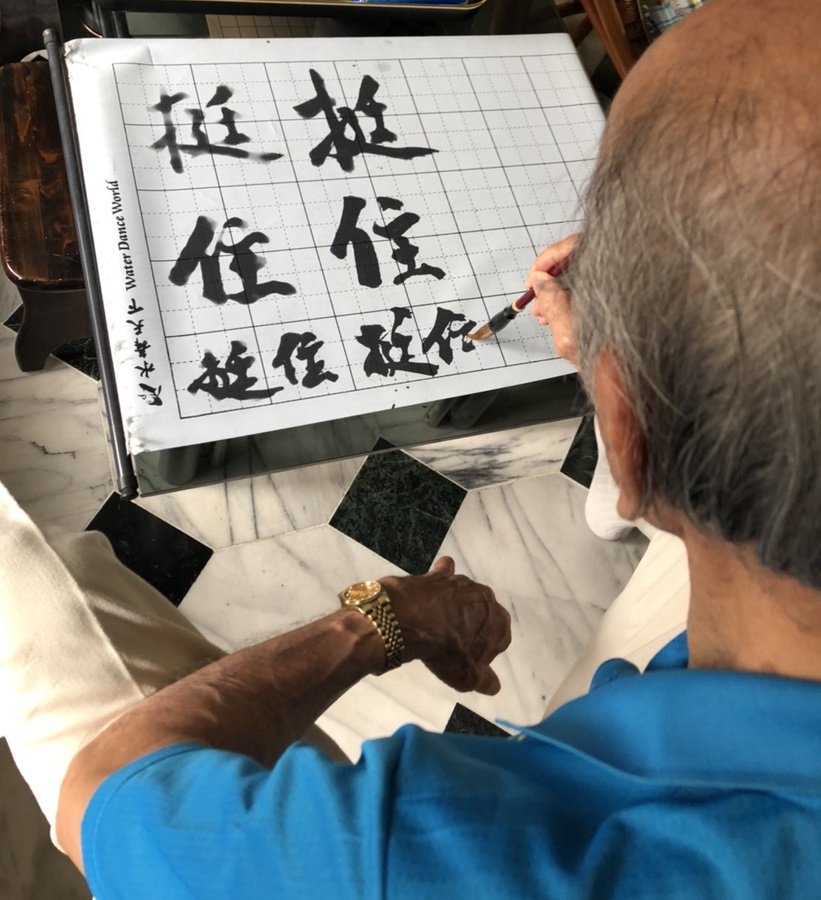 挺 挺
住 住
挺住 挺住
水舞天下 Water Dance World